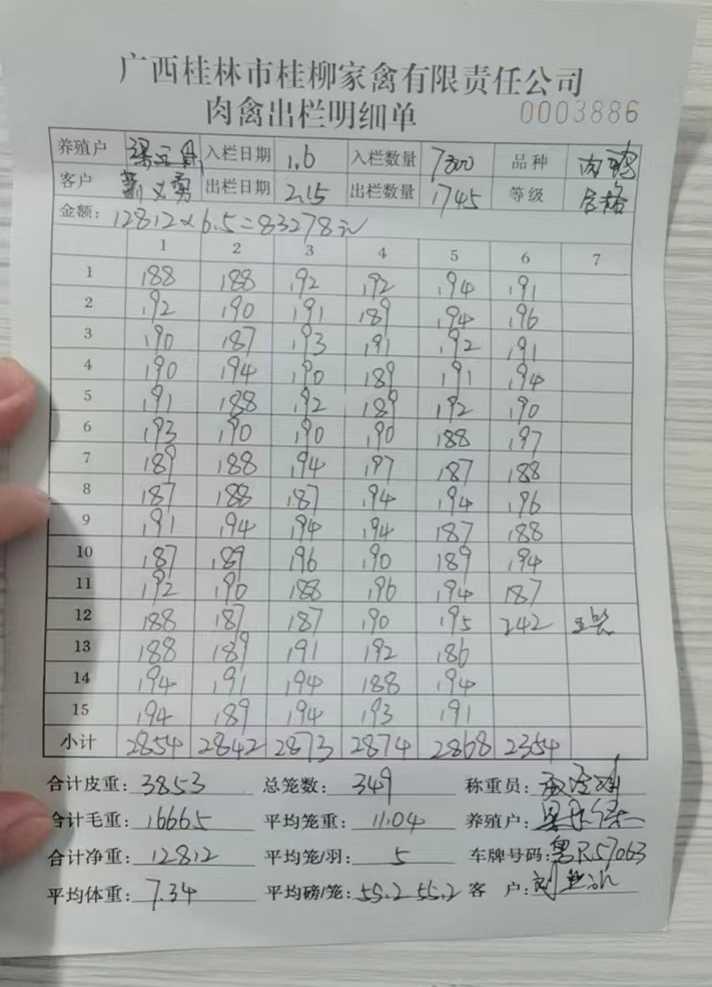 广西桂林市桂柳家禽有限责任公司
肉禽出栏明细单 0003886
养殖户 入栏日期 1.6 入栏数量 7300 品种 肉鸭
客户 勇 出栏日期 2.15 出栏数量 1745 等级 合格
金额: 12812×6.5=83278元
1 2 3 4 5 6 7
1 188 188 192 192 194 191
2 192 190 191 189 194 196
3 190 187 193 191 192 191
4 190 194 190 189 191 194
5 191 188 192 189 192 190
6 193 190 190 190 188 197
7 189 188 194 197 187 188
8 187 188 187 194 194 196
9 191 194 194 194 187 188
10 187 189 196 190 189 194
11 192 190 188 196 194 187
12 188 187 187 190 195 242
13 188 189 191 192 186
14 194 191 194 188 194
15 194 189 194 193 191
小计 2854 2842 2873 2874 2868 2354
合计皮重: 3853 总笼数: 349 称重员:
合计毛重: 16665 平均笼重: 11.04 养殖户:
合计净重: 12812 平均笼/羽: 5 车牌号码: 粤R57063
平均体重: 7.34 平均磅/笼: 55.2 55.2 客 户: 刘